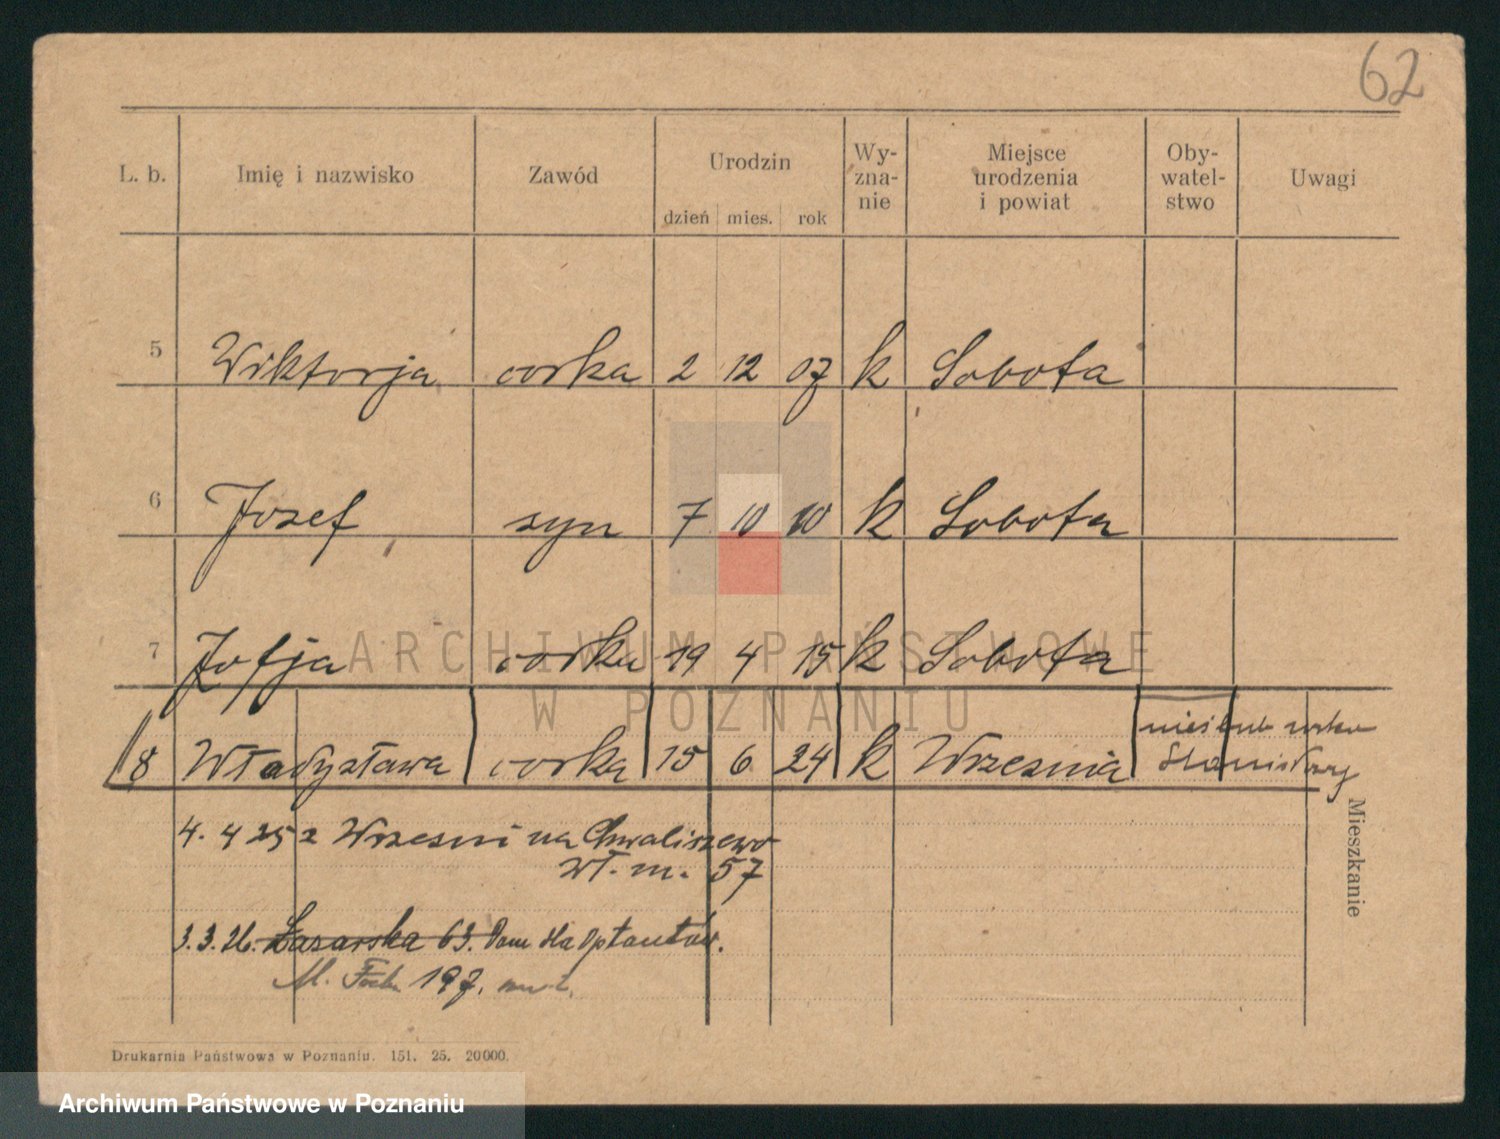 62
L. b. Imię i nazwisko Zawód Urodzin Wy-zna-nie Miejsce urodzenia i powiat Oby-watel-stwo Uwagi
dzień mies. rok
5 Wiktorja corka 2 12 07 k Sobota
6 Jozef syn 7 10 10 k Sobota
7 Zofja corka 19 4 15 k Sobota
ARCHIWUM PAŃSTWOWE
W POZNANIU
nieślub
8 Władysława corka 15 6 24 k Wrzesnia Stanisławy
Mieszkanie
4. 4 25 z Wrzesni na Chwaliszewo
wł. m. 57
3.3.26. Łazarska 63. Dom dla Optantów.
M. Focha 197.
Drukarnia Państwowa w Poznaniu. 151. 25. 20000.
Archiwum Państwowe w Poznaniu